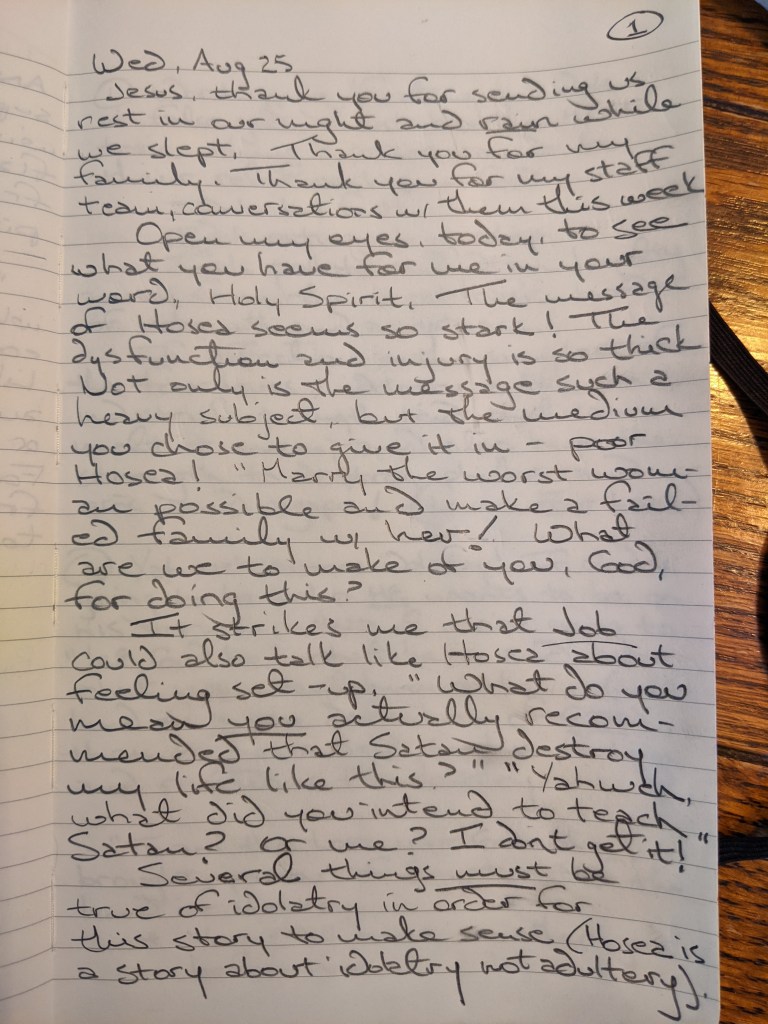 1
Wed, Aug 25
Jesus, thank you for sending us
rest in our night and rain while
we slept. Thank you for my
family. Thank you for my staff
team, conversations w/ them this week
Open my eyes, today, to see
what you have for me in your
word, Holy Spirit. The message
of Hosea seems so stark! The
dysfunction and injury is so thick
Not only is the message such a
heavy subject, but the medium
you chose to give it in - poor
Hosea! "Marry the worst wom-
an possible and make a fail-
ed family w/ her! What
are we to make of you, God,
for doing this?
It strikes me that Job
could also talk like Hosea about
feeling set-up. "What do you
mean you actually recom-
mended that Satan destroy
my life like this?" "Yahweh,
what did you intend to teach
Satan? Or me? I dont get it!"
Several things must be
true of idolatry in order for
this story to make sense (Hosea is
a story about idolatry not adultery).